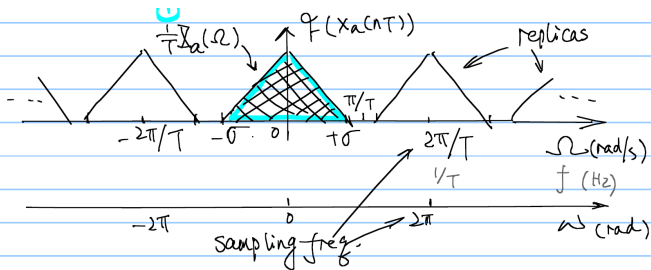 1/T X_a(Ω) F(x_a(nT)) replicas
... π/T ...
-2π/T -σ 0 +σ 2π/T Ω (rad/s)
1/T f (Hz)
-2π 0 2π ω (rad)
sampling freq.